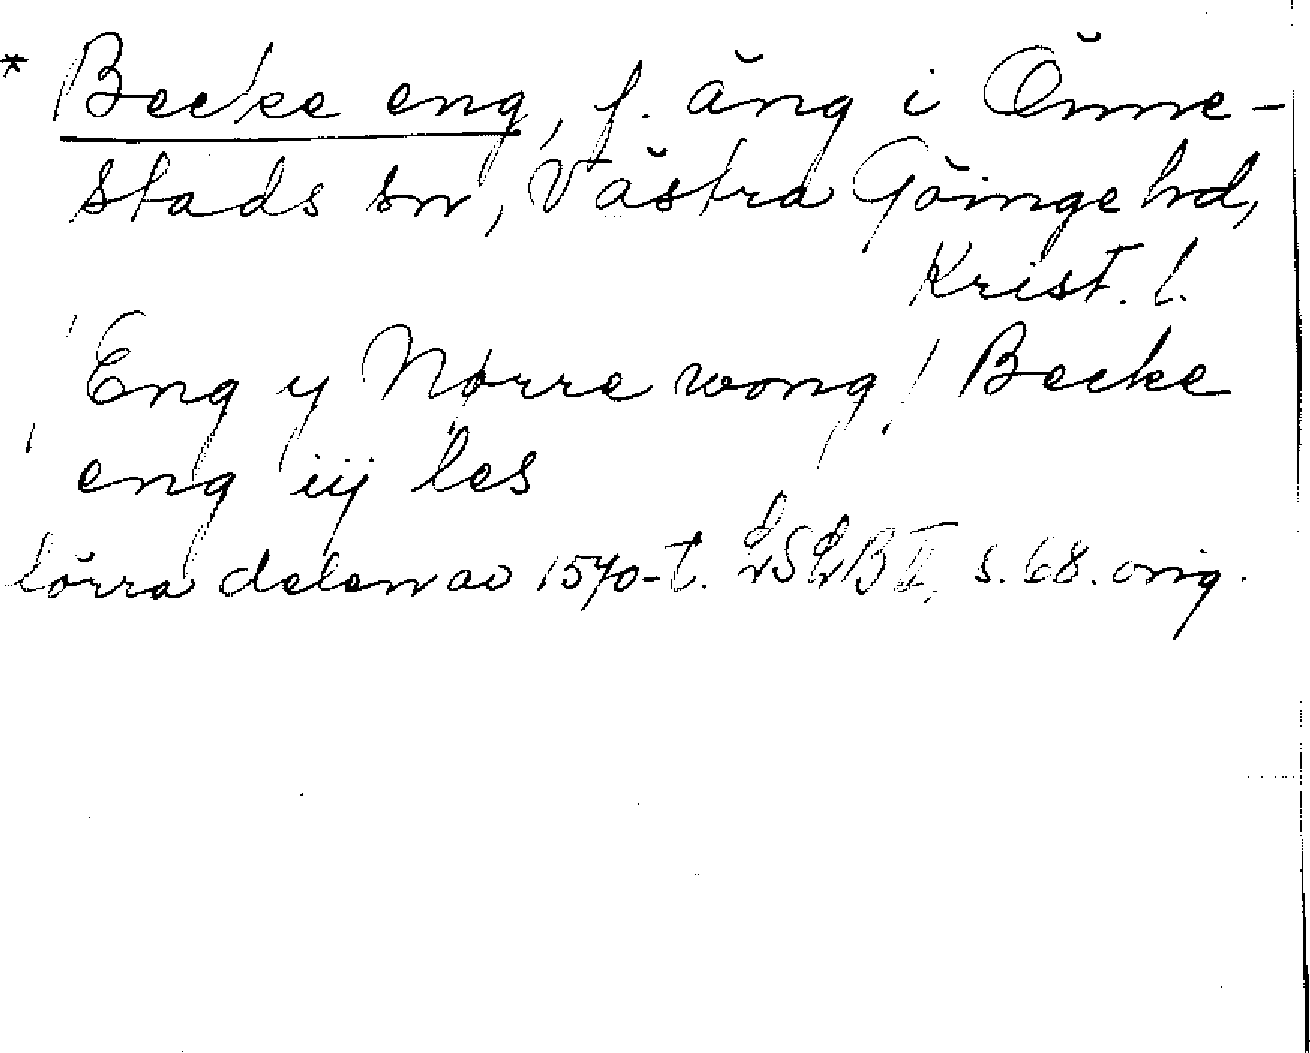 * Becke eng, f. äng i Önne-
stads sn, Västra Göinge hd,
Krist. l.
Eng y Nørre wong / Becke
eng iij les
förra delen av 1570-t. LSLB II, s. 68. orig.